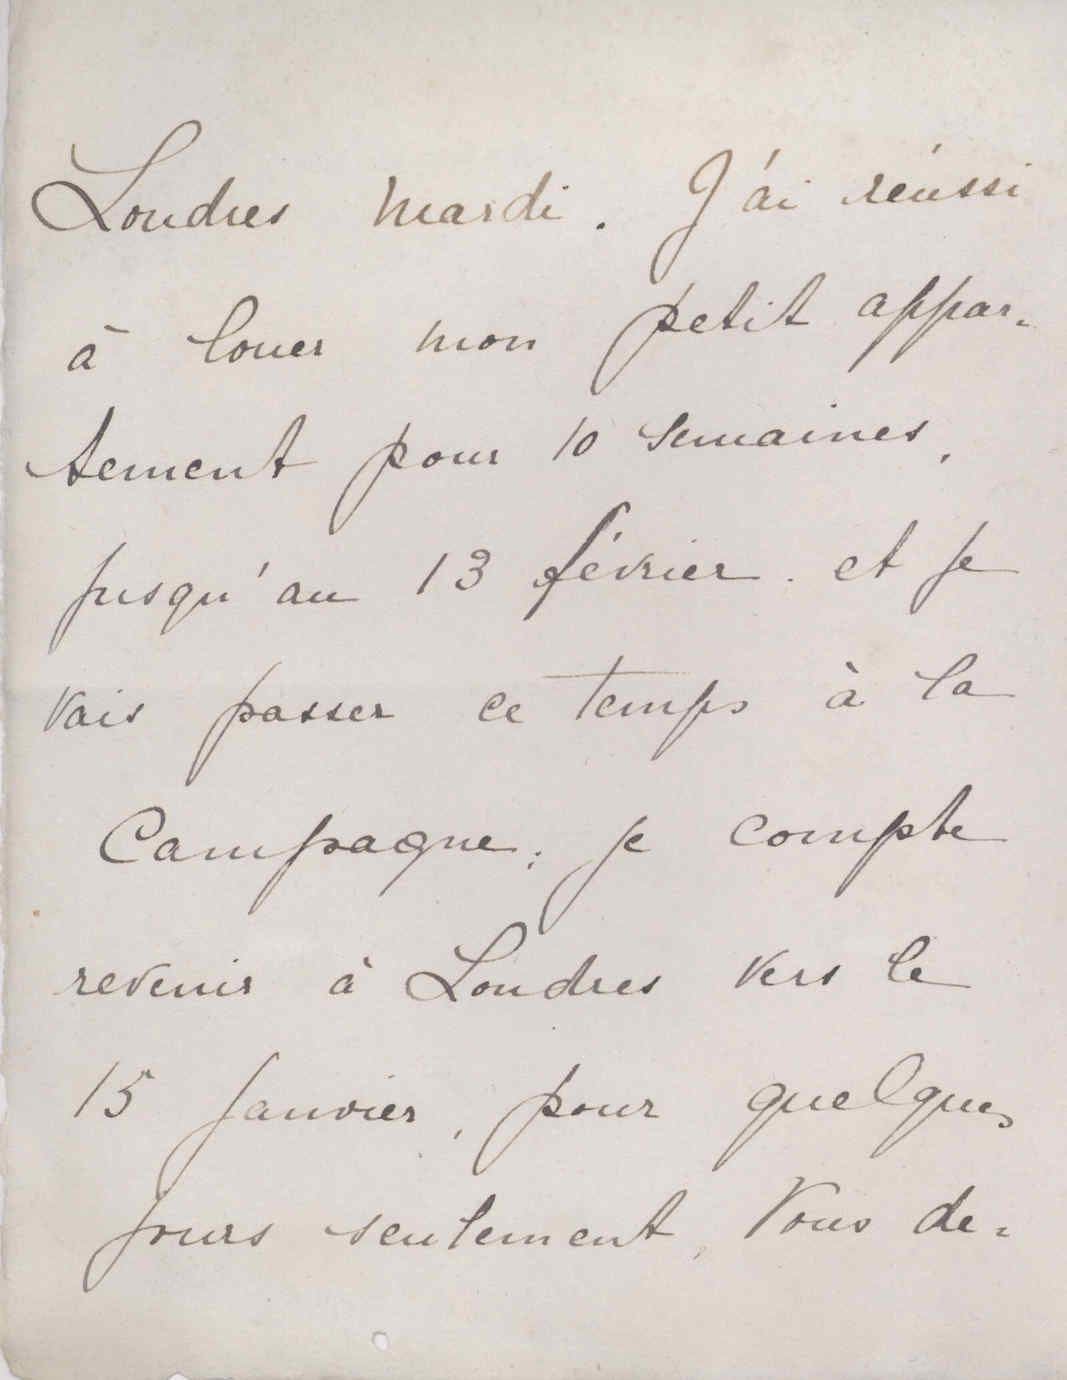 Londres mardi. J'ai réussi
à louer mon petit appar-
tement pour 10 semaines,
jusqu'au 13 février. et je
vais passer ce temps à la
Campagne; je compte
revenir à Londres vers le
15 janvier, pour quelques
jours seulement, Vous de-